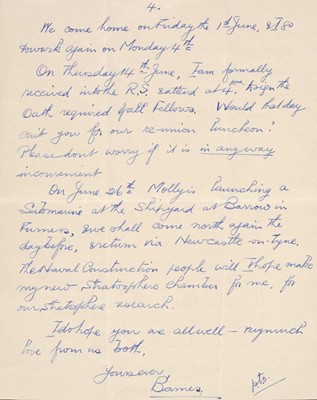 4.
We come home on Friday the 1st June, & I go
to work again on Monday 4th
On Thursday 14th June, I am formally
received into the R.S. & attend at 4. pm. to sign the
Oath required of all Fellows. Would that day
suit you for our re-union luncheon?
Please dont worry if it is in any way
inconvenient
On June 26th Molly is launching a
Submarine at the Shipyard at Barrow in
Furness, & we shall come north again the
day before, & return via Newcastle-on-Tyne.
The Naval Construction people will I hope make
my new Stratosphere chamber for me, for
our Stratosphere research.
I do hope you are all well – very much
love from us both,
Yours ever
Barnes.
pto.